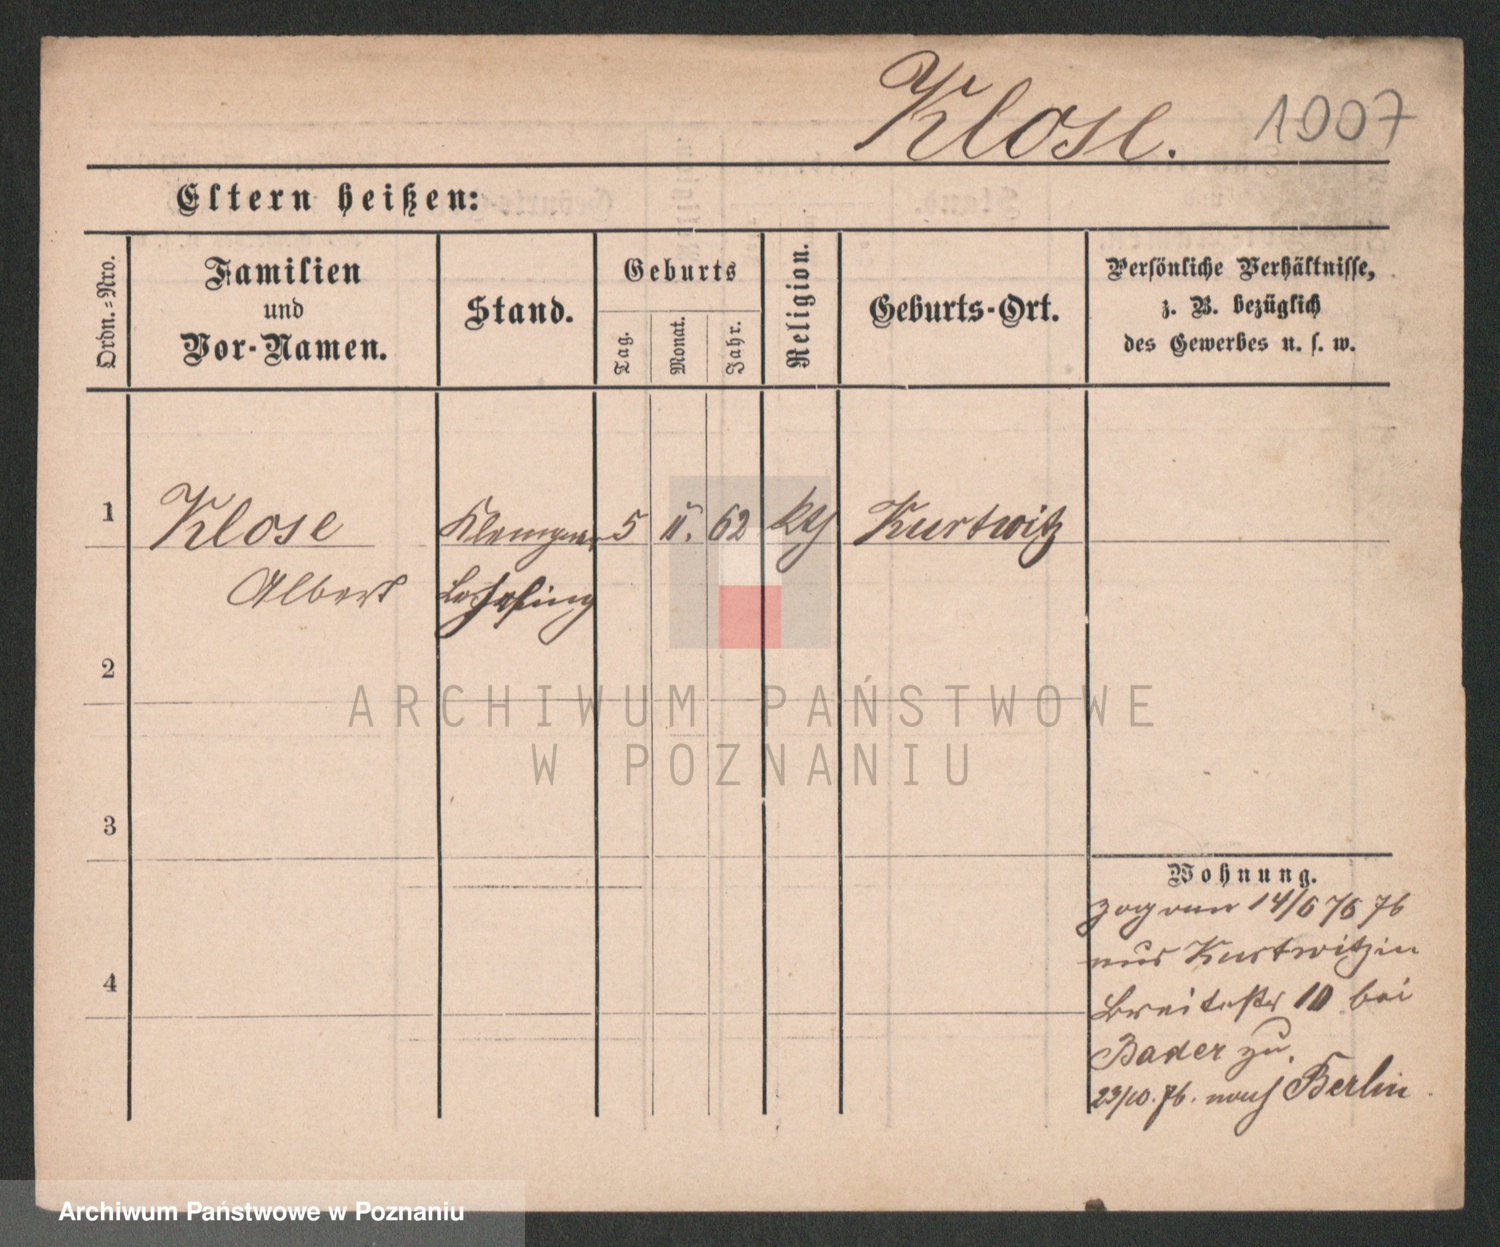 Klose. 1007
Eltern heißen:
Ordn.-Nro.
Familien
und
Vor-Namen.
Stand.
Geburts
Tag.
Monat.
Jahr.
Religion.
Geburts-Ort.
Persönliche Verhältnisse,
z. B. bezüglich
des Gewerbes u. s. w.
1 Klose Klempner 5 II. 62 kth Kurtwitz
Albert Lehrling
2
ARCHIWUM PAŃSTWOWE
W POZNANIU
3
Wohnung.
zog am 14/6 76 76
aus Kurtwitz in
4
Breitestr 10 bei
Bader zu.
23/10. 76. nach Berlin.
Archiwum Państwowe w Poznaniu